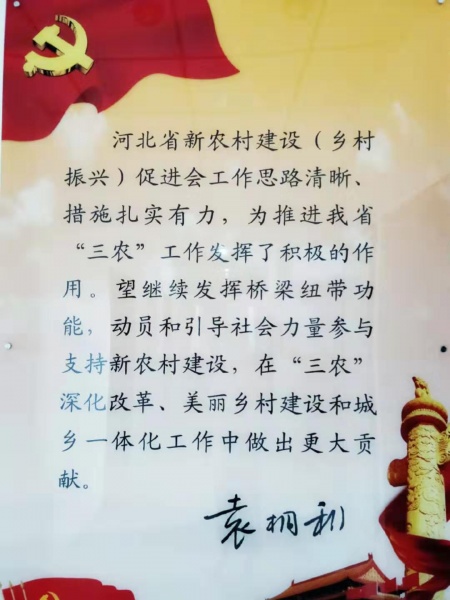 河北省新农村建设（乡村
振兴）促进会工作思路清晰、
措施扎实有力，为推进我省
“三农”工作发挥了积极的作
用。望继续发挥桥梁纽带功
能，动员和引导社会力量参与
支持新农村建设，在“三农”
深化改革、美丽乡村建设和城
乡一体化工作中做出更大贡
献。
袁桐利